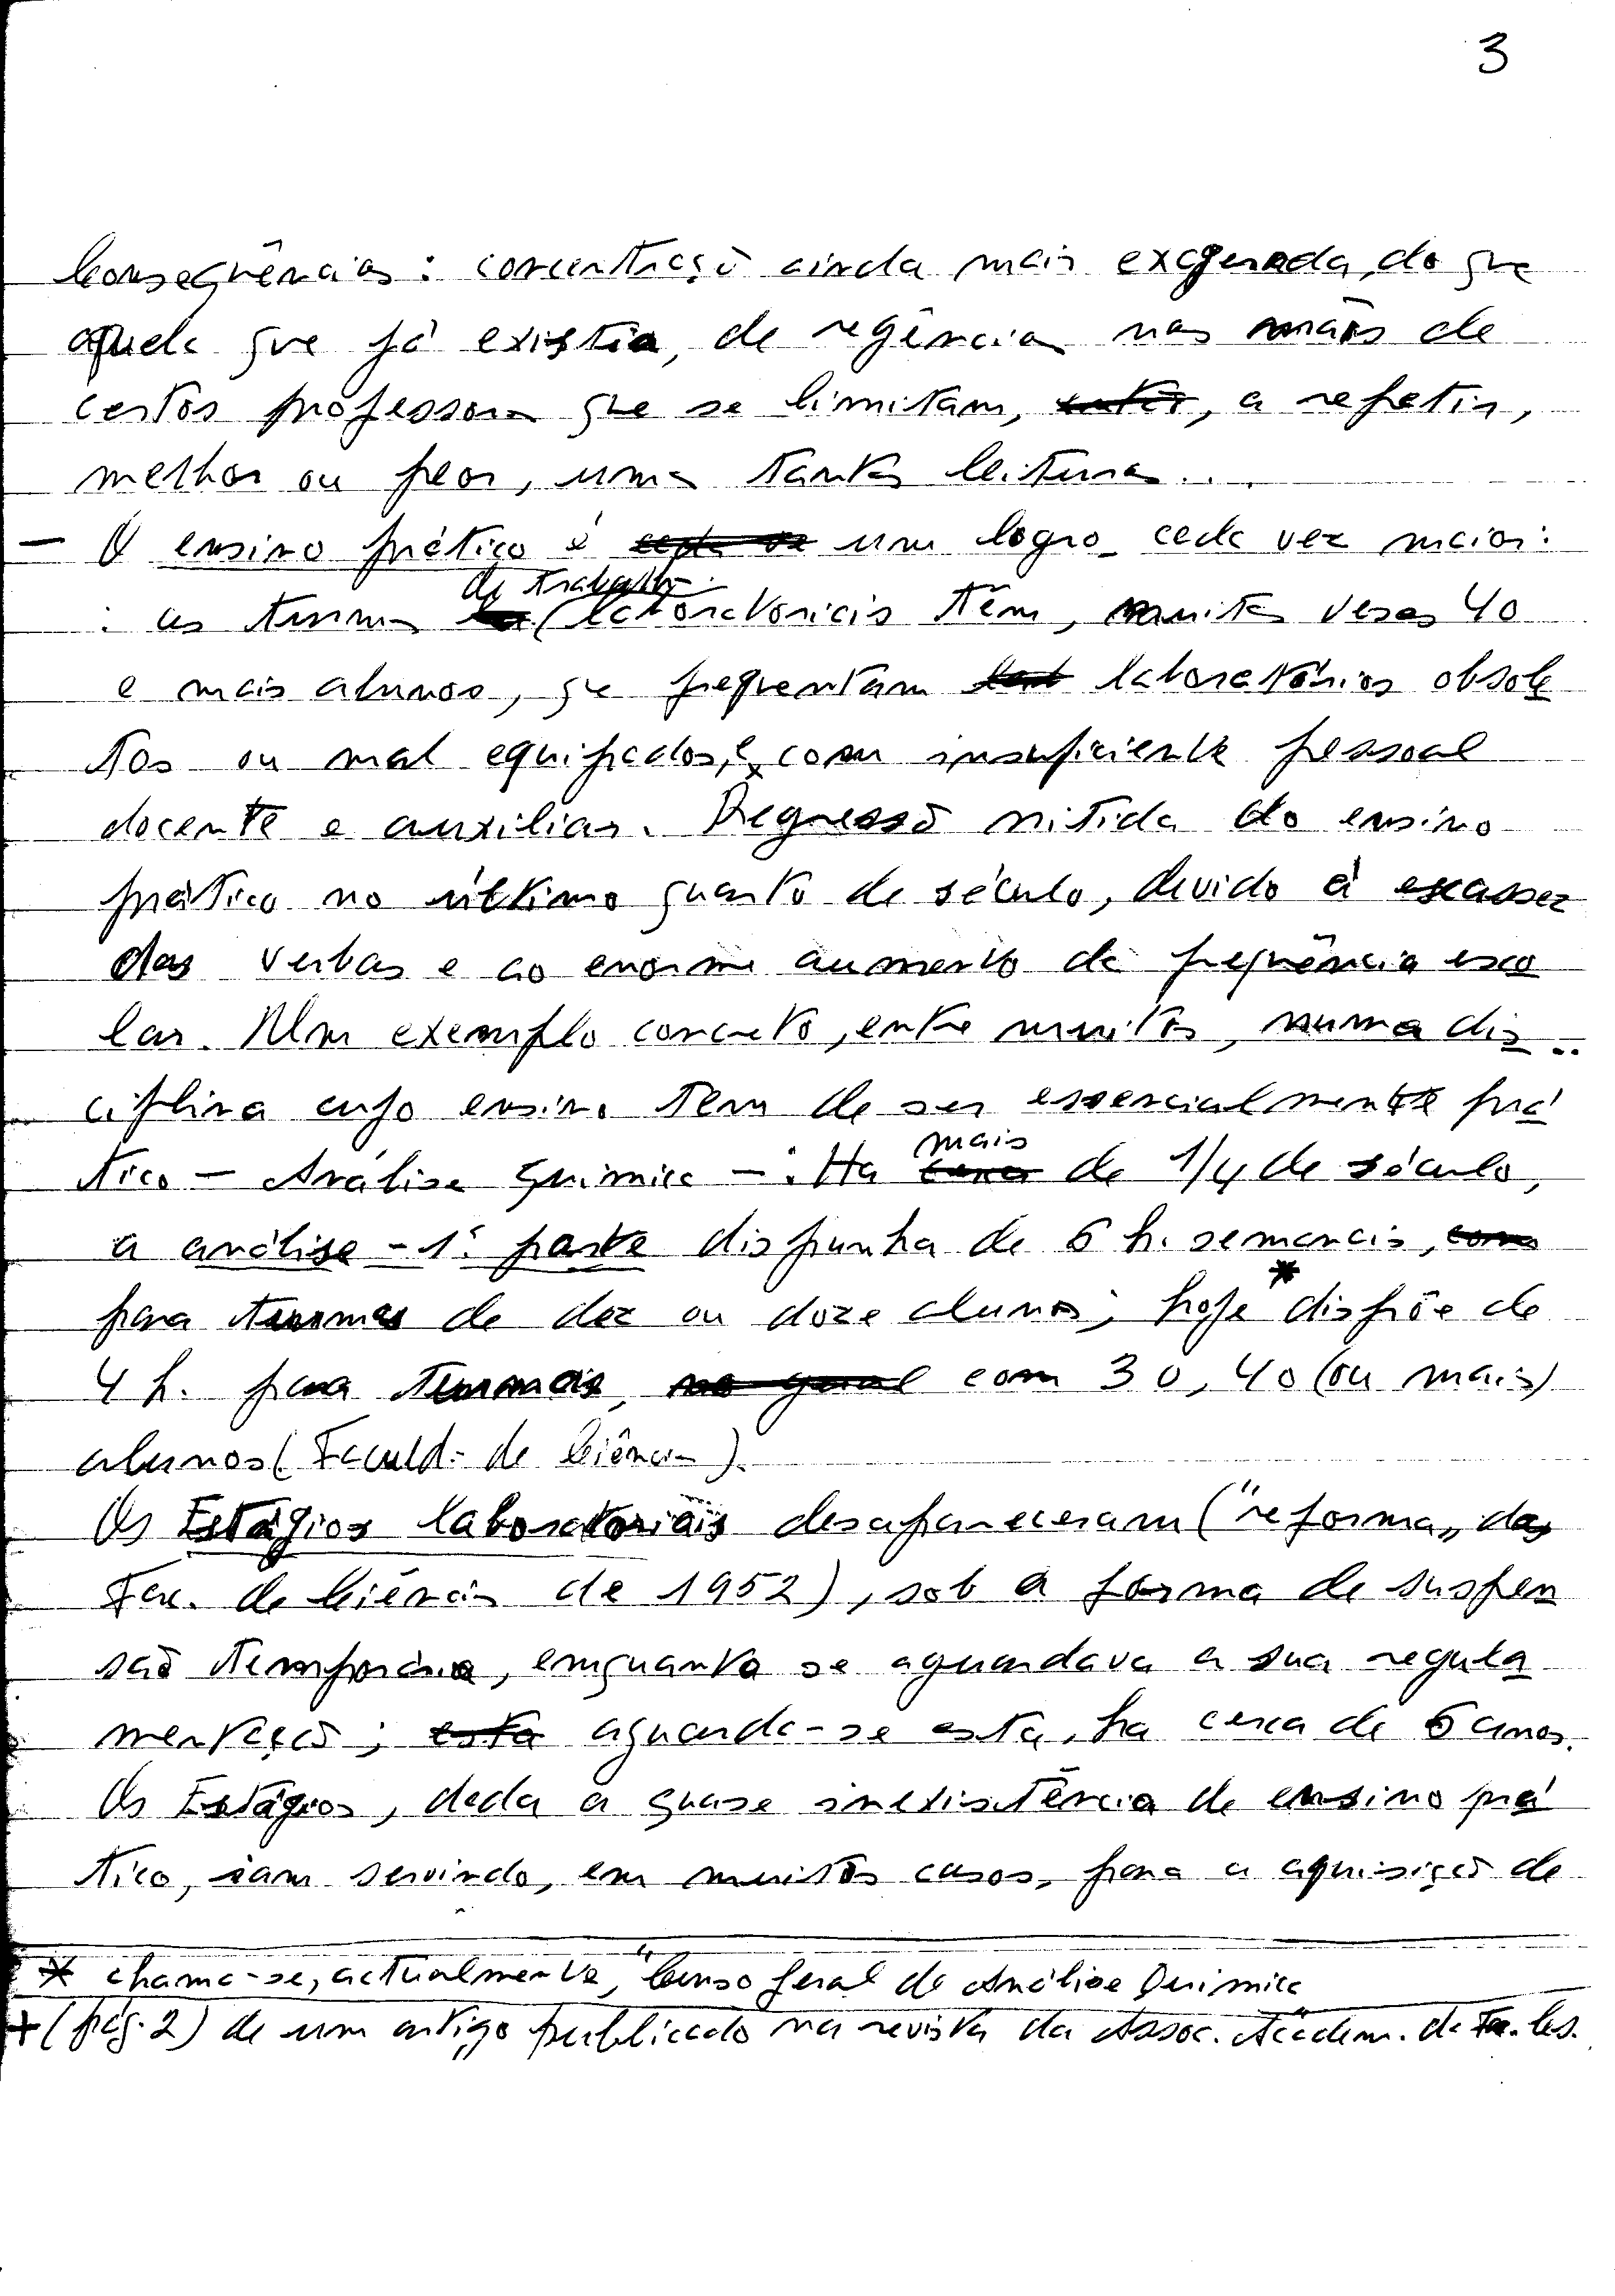 3
Consequências: concentração ainda mais exagerada, do que
aquela que já existia, de regências nas mãos de
certos professores que se limitam, a repetir,
melhor ou peor, umas tantas leituras...
— O ensino prático é um logro cada vez maior:
: as turmas de trabalhos laboratoriais têm, muitas vezes 40
e mais alunos, que frequentam laboratórios obsole
tos ou mal equipados, e com insuficiente pessoal
docente e auxiliar. Regressão nitida do ensino
prático no último quarto de século, devido à escassez
das verbas e ao enorme aumento da frequência esco
lar. Um exemplo concreto, entre muitos, numa dis
ciplina cujo ensino tem de ser essencialmente prá
tico — Análise Quimica —: Ha mais de 1/4 de século,
a análise - 1ª parte dispunha de 6 h. semanais,
para turmas de dez ou doze alunos; hoje * dispõe de
4 h. para turmas, com 30, 40 (ou mais)
alunos (Faculd. de Ciências).
Os Estágios laboratoriais desapareceram ("reforma„ das
Fac. de Ciências de 1952), sob a forma de suspen
são temporária, enquanto se aguardava a sua regula
mentação; aguarda-se esta, ha cerca de 6 anos.
Os Estágios, dada a quase inexistência de ensino prá
tico, iam servindo, em muitos casos, para a aquisição de
* chama-se, actualmente, "Curso Geral de Análise Quimica
+ (pág. 2) de um artigo publicado na revista da Assoc. Academ. da Fac. Cs.